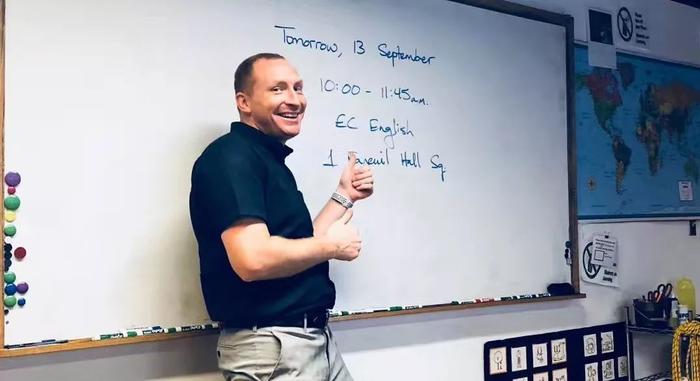 Tomorrow, 13 September
10:00 - 11:45 a.m.
EC English
1 Faneuil Hall Sq.